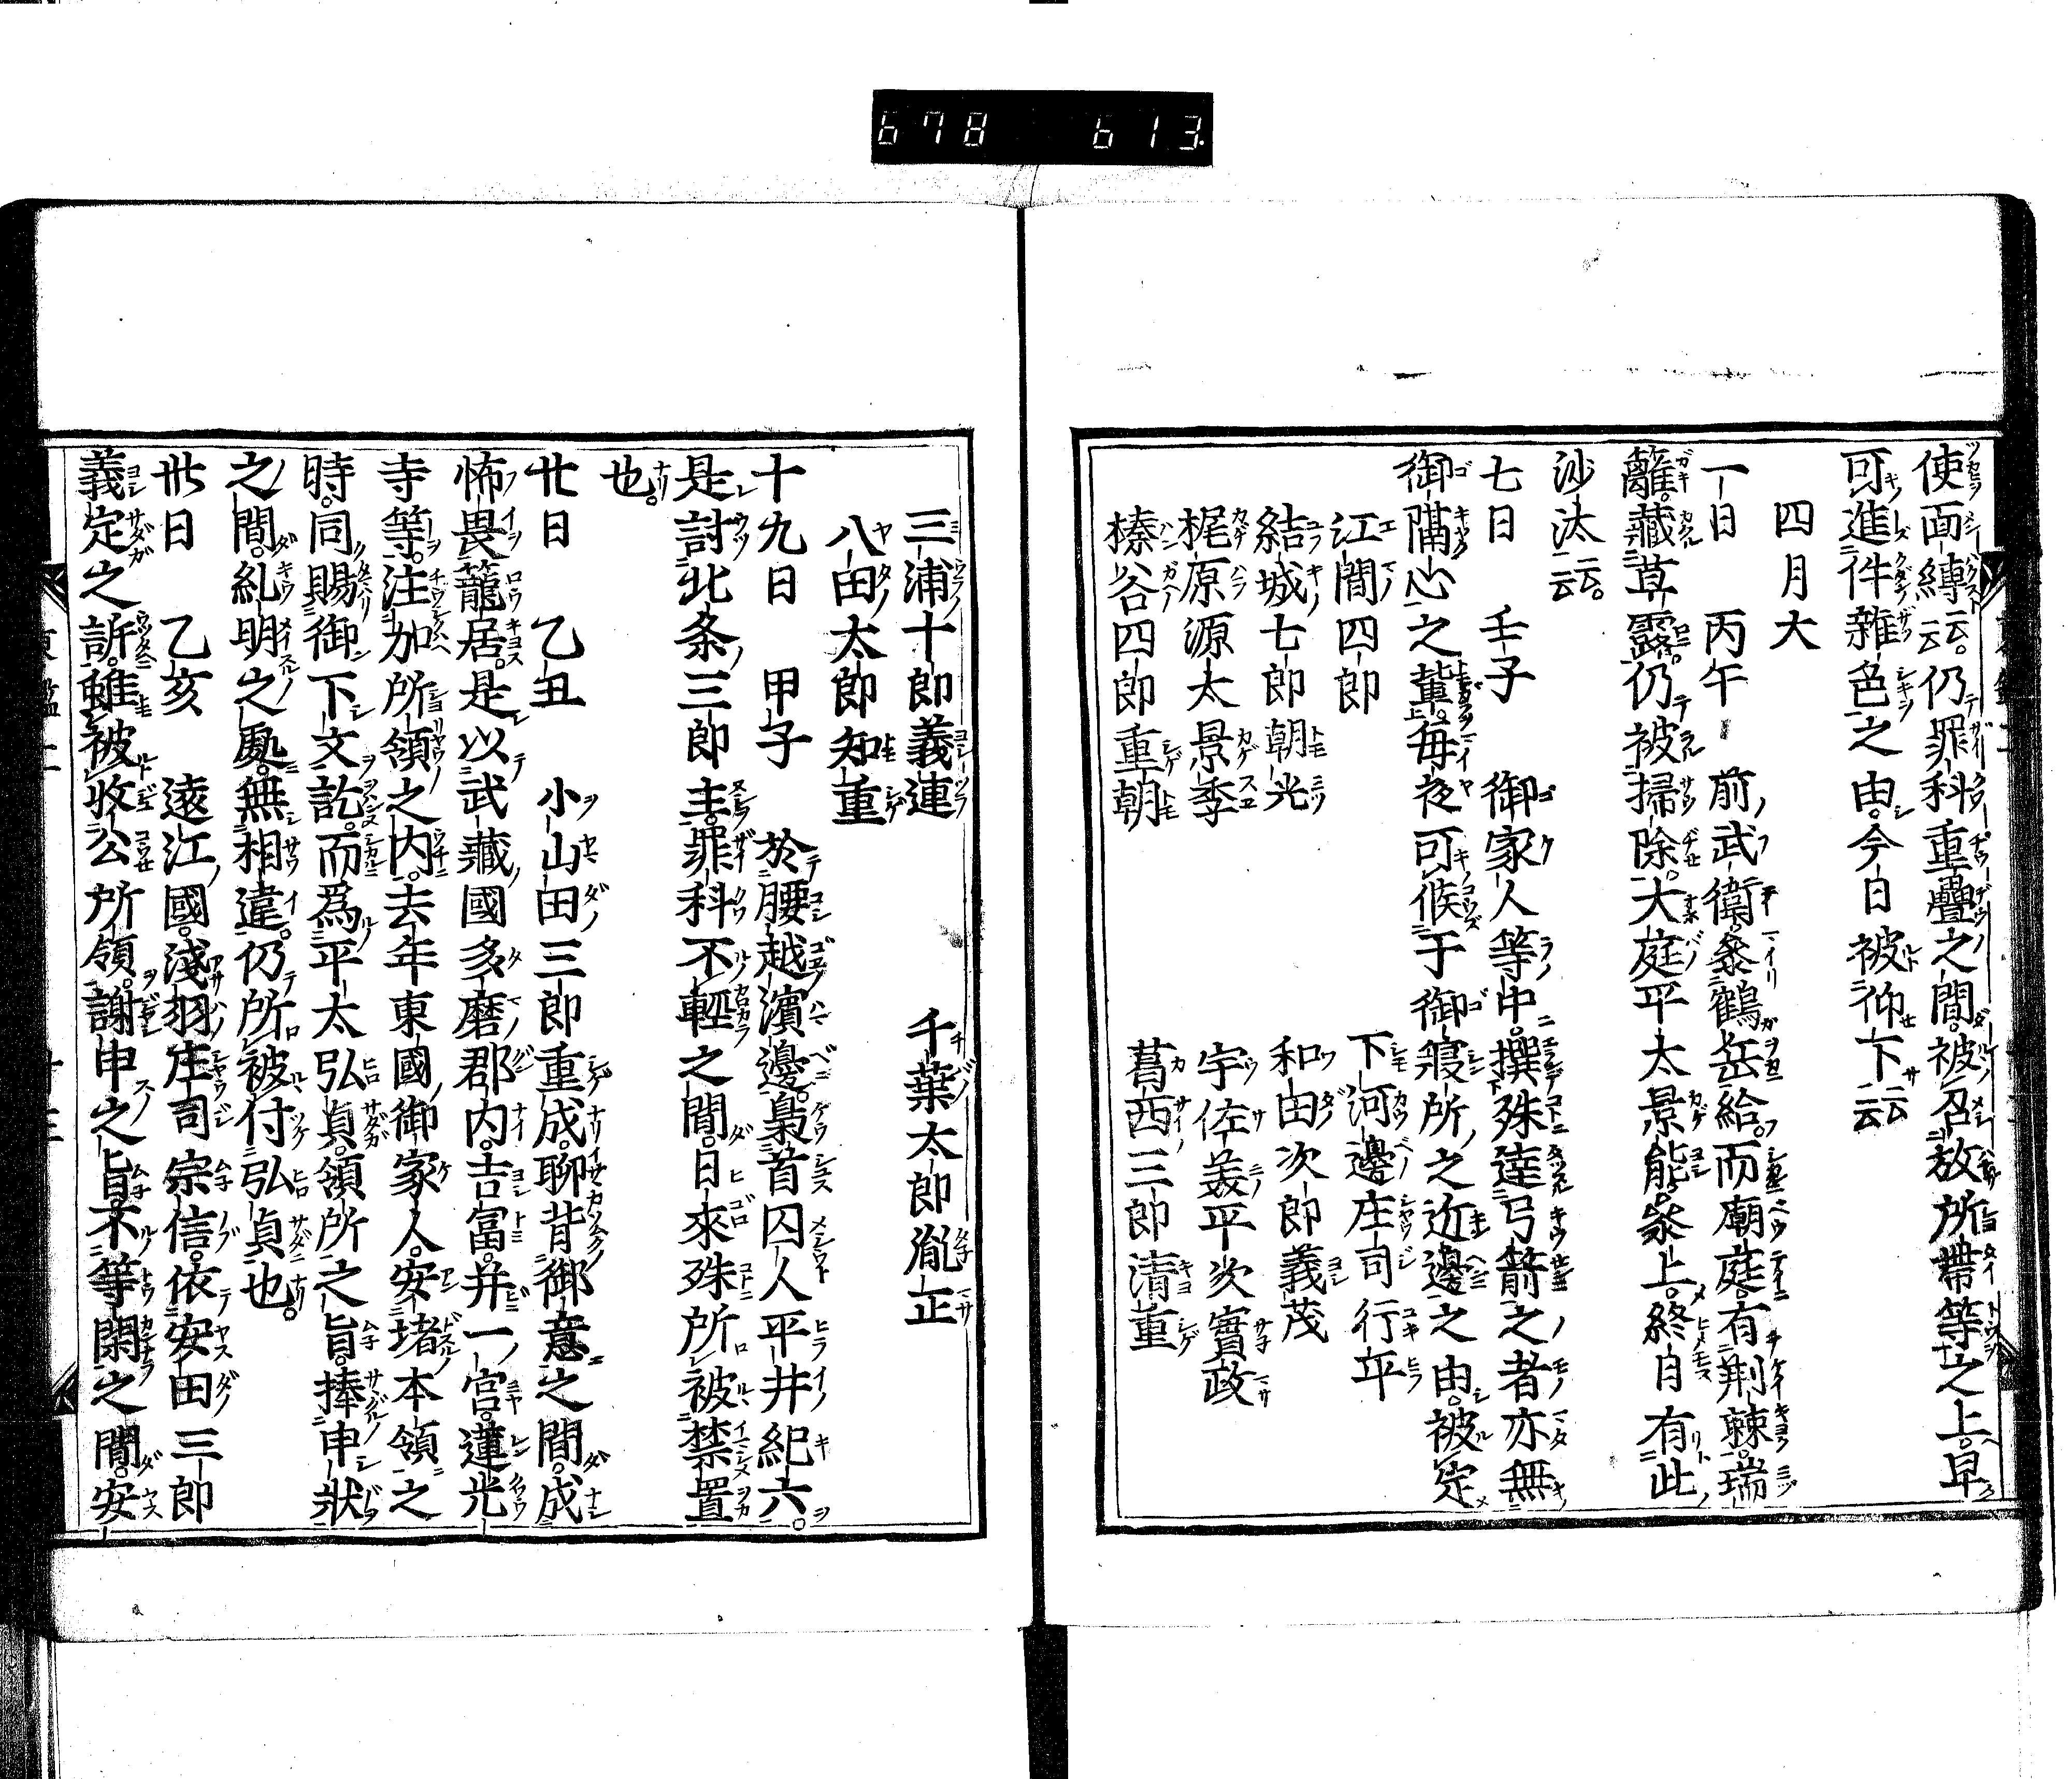 678 613.
使面縛云云。仍罪科重疊之間。被召放所帶等之上。早
可進件雜色之由。今日被仰下云云
四月大
一日 丙午 前武衞。參鶴岳給。而廟庭。有荆棘。瑞
籬。藏草露。仍被掃除。大庭平太景能。參上。終日有此
沙汰云云。
七日 壬子 御家人等中。撰殊達弓箭之者亦無
御隔心之輩。每夜可候于御寢所之近邊之由。被定
江間四郎 下河邊庄司行平
結城七郎朝光 和田次郎義茂
梶原源太景季 宇佐美平次實政
榛谷四郎重朝 葛西三郎清重
三浦十郎義連 千葉太郎胤正
八田太郎知重
十九日 甲子 於腰越濱邊。梟首囚人平井紀六。
是討北条三郎主。罪科不輕之間。日來殊所被禁置
也。
廿日 乙丑 小山田三郎重成。聊背御意之間。成
怖畏籠居。是以武藏國多磨郡内。吉富。并一宮。蓮光
寺等。注加所領之内。去年東國御家人。安堵本領之
時。同賜御下文訖。而爲平太弘貞。領所之旨。捧申狀
之間。糺明之處。無相違。仍所被付弘貞也。
卅日 乙亥 遠江國。淺羽庄司宗信。依安田三郎
義定之訴。雖被收公所領。謝申之旨。不等閑之間。安